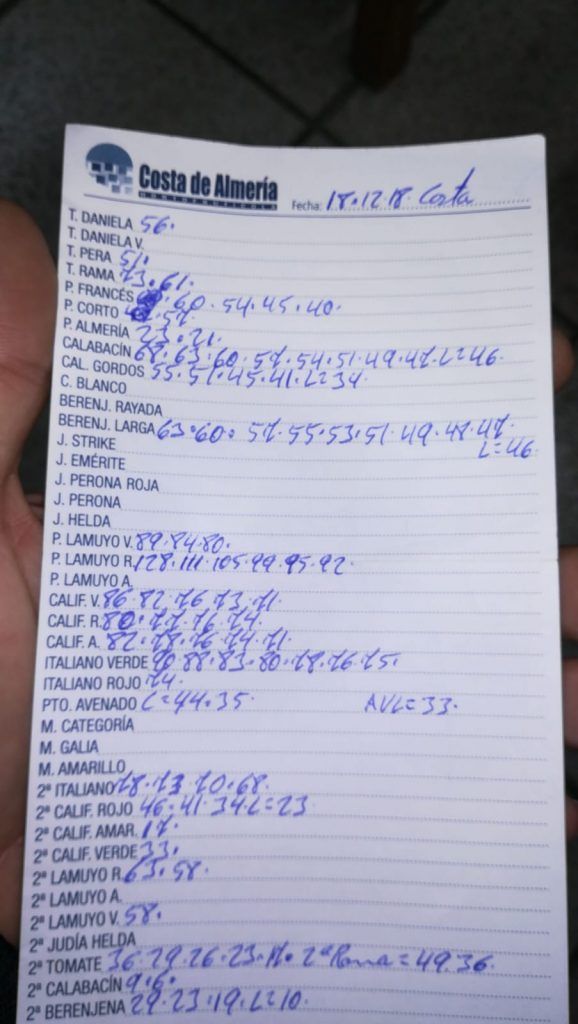 Costa de Almería
HORTOFRUTÍCOLA
Fecha: 18.12.18. Costa
T. DANIELA 56.
T. DANIELA V.
T. PERA 51.
T. RAMA 73.61.
P. FRANCÉS 60.54.45.40.
P. CORTO 57.
P. ALMERÍA 23.21.
CALABACÍN 68.63.60.57.54.51.49.47.L=46.
CAL. GORDOS 55.51.45.41.L=34.
C. BLANCO
BERENJ. RAYADA
BERENJ. LARGA 63.60.57.55.53.51.49.48.47.
L=46
J. STRIKE
J. EMÉRITE
J. PERONA ROJA
J. PERONA
J. HELDA
P. LAMUYO V. 89.84.80.
P. LAMUYO R. 128.111.105.99.95.92
P. LAMUYO A.
CALIF. V. 86.82.76.73.71.
CALIF. R. 80.77.76.74.
CALIF. A. 82.78.76.74.71.
ITALIANO VERDE 90.88.83.80.78.76.75.
ITALIANO ROJO 74.
PTO. AVENADO L=44.35. AVL=33.
M. CATEGORÍA
M. GALIA
M. AMARILLO
2ª ITALIANO 78.73.70.68.
2ª CALIF. ROJO 46.41.34L=23
2ª CALIF. AMAR. 17.
2ª CALIF. VERDE 33.
2ª LAMUYO R. 63.58.
2ª LAMUYO A.
2ª LAMUYO V. 58.
2ª JUDÍA HELDA
2ª TOMATE 36.29.26.23.17. 2ª Rama=49.36.
2ª CALABACÍN 9.6.
2ª BERENJENA 29.23.19.L=10.